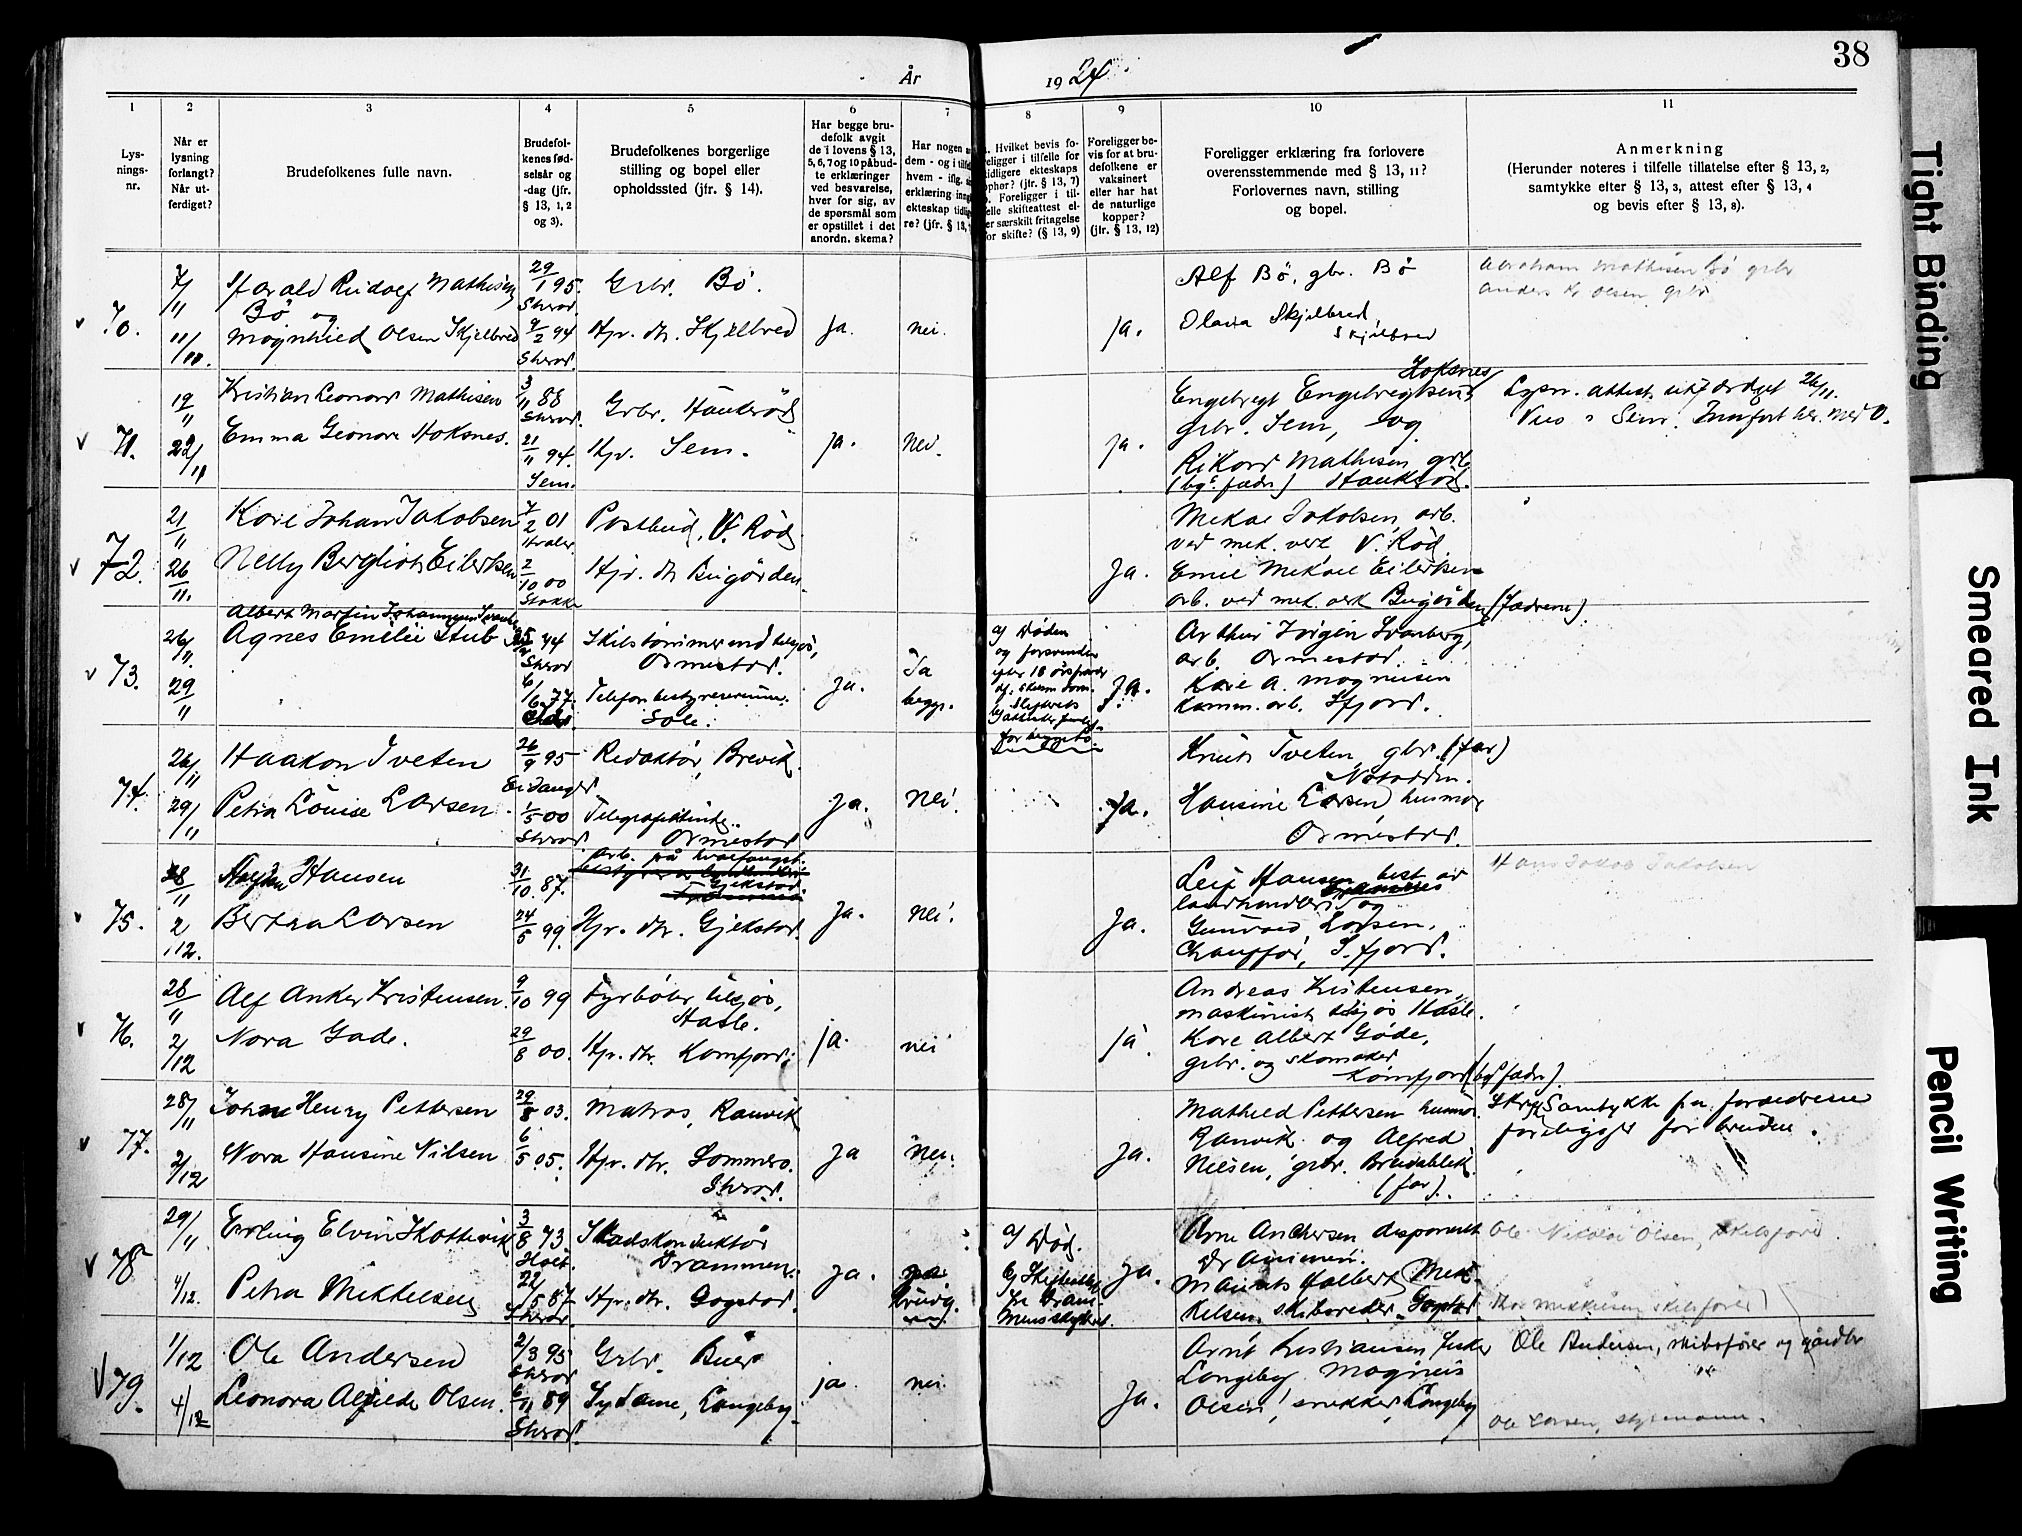 38
År 1924.
1 2 3 4 5 6 7 8 9 10 11
Lys-
nings-
nr.
Når er
lysning
forlangt?
Når ut-
ferdiget?
Brudefolkenes fulle navn.
Brudefol-
kenes fød-
selsår og
-dag (jfr.
§ 13, 1, 2
og 3).
Brudefolkenes borgerlige
stilling og bopel eller
opholdssted (jfr. § 14).
Har begge bru-
defolk avgit
de i lovens § 13,
5, 6, 7 og 10 påbud-
te erklæringer
ved besvarelse,
hver for sig, av
de spørsmål som
er opstillet i det
anordn. skema?
Har nogen
dem - og i tilfelle
hvem - iflg.
erklæring
ekteskap tidlig
re? (jfr. § 13,
Hvilket bevis fo-
religger i tilfelle for
tidligere ekteskaps
ophør? (jfr. § 13, 7)
Foreligger i til-
felle skifteattest el-
ler særskilt fritagelse
for skifte? (§ 13, 9)
Foreligger be-
vis for at bru-
defolkene er
vaksinert
eller har hat
de naturlige
kopper?
(jfr. § 13, 12)
Foreligger erklæring fra forlovere
overensstemmende med § 13, 11?
Forlovernes navn, stilling
og bopel.
Anmerkning
(Herunder noteres i tilfelle tillatelse efter § 13, 2,
samtykke efter § 13, 3, attest efter § 13, 4
og bevis efter § 13, 8).
70.
7/11
11/11.
Harald Rudolf Mathisen
Bö og
Magnhild Olsen Skjelbred
29/1 95.
9/2 94
Grbr. Bö.
Hpr. dtr. Skjelbred
Ja.
nei.
ja.
Alf Bö, gbr. Bö
Olava Skjelbred,
Skjelbred
Abraham Mathisen Bö grbr
Anders Kr Olsen, grbr
71.
19/11
22/11
Kristian Leonard Mathisen
Emma Leonora Hoksnes.
3/11 88
21/11 94.
Sem.
Grbr. Haukeröd
Hpr. Sem.
ja.
nei.
ja.
Hoksnes,
Engebregt Engebregtsen
grbr. Sem, og
Rikard Mathisen grbr
(bge fedre) Haukeröd.
Lysn. attest utferdiget 26/11.
Vies i Sem. Innfört her med O.
72.
21/11
26/11.
Kare Johan Jakobsen
Nelly Bergliot Eilertsen
7/2 01
2/10 00
Stokke
Postbud, V. Röd
Hjv. dtr Bugården.
Ja.
Mekal Jakobsen, arb.
ved mek. verk V. Röd.
Emil Mekael Eilertsen
arb. ved mek. verk Bugården (fedrene).
73.
26/11.
29/11
Albert Martin Johannesen
Agnes Emilie Stub
44
6/6 77.
Skibstömmermand
Ormestad.
Telefonbestyrerinne.
Sole.
Ja.
Ja
begge.
a) Döden
og forsvunden
efter 18 års fravær
Ja.
Arthur Jörgen Svanberg,
arb. Ormestad.
Kare A. Magnussen
Komm. arb. Sfjord.
74.
26/11
29/11
Haakon Tveten
Petra Louise Larsen.
26/9 95
Eidanger
1/5 00
Redaktör, Brevik.
Telegrafistinde.
Ormestad
Ja.
nei.
Ja.
Knut Tveten, gbr. (far)
Notodden.
Hansine Larsen husmor
Ormestad.
75.
28/11
2/12.
Hansen
Bertha Larsen
31/10 87.
24/5 99.
arb. på hvalfangst.
Gjekstad
Hpr. dtr. Gjekstad.
Ja.
nei.
Ja.
Leif Hansen best av
landhandleri og
Gunvald Larsen,
Chaufför, S.fjord.
Hans Jakob Jakobsen
76.
28/11
2/12
Alf Anker Kristensen.
Nora Gade.
9/10 99
29/8 00.
Fyrböter tilsjös,
Hasle.
Hpr. dtr. Kamfjord.
ja.
nei
ja.
Andreas Kristensen,
maskinist tilsjös Hasle.
Kare Albert Gade,
grbr. og skomaker
Kamfjord (bge fedre).
77.
28/11
2/12
Johan Henry Pettersen
Nora Hansine Nilsen
29/8 03.
6/5 05.
Matros, Ranvik
Hpr. dtr. Sommero.
Ja
nei.
Ja.
Mathild Pettersen husmor.
Ranvik og Alfred
Nilsen, grbr. Breidablik.
(far).
Skrift. Samtykke fra foreldrene
foreligger for bruden.
78
29/11
4/12.
Erling Elvin Skotteviik
Petra Mikkelsen
3/8 73
22/5 87
Stadskonduktör
Drammen.
Hpr. dtr. Gogstad.
Ja.
a) Död.
b) Skifteattest
fra Dram-
mens skifteret.
Ja.
Arne Andersen disponent
Drammen.
Maurits Halbert Mik-
kelsen skibsreder Gogstad
Ole Nikolai Olsen, skibsförer.
Thor Mikkelsen skibsförer
79.
1/12
4/12
Ole Andersen
Leonora Alfilde Olsen.
2/3 95
6/11 89
Grbr. Buer
Sydame, Langeby.
ja
nei
Ja.
Arnt Kristiansen fisker
Langeby Magnus
Olsen, snekker, Langeby
Ole Andersen, skibsförer og gårdbr
Ole Larsen, styrmann.
Tight Binding
Smeared Ink
Pencil Writing